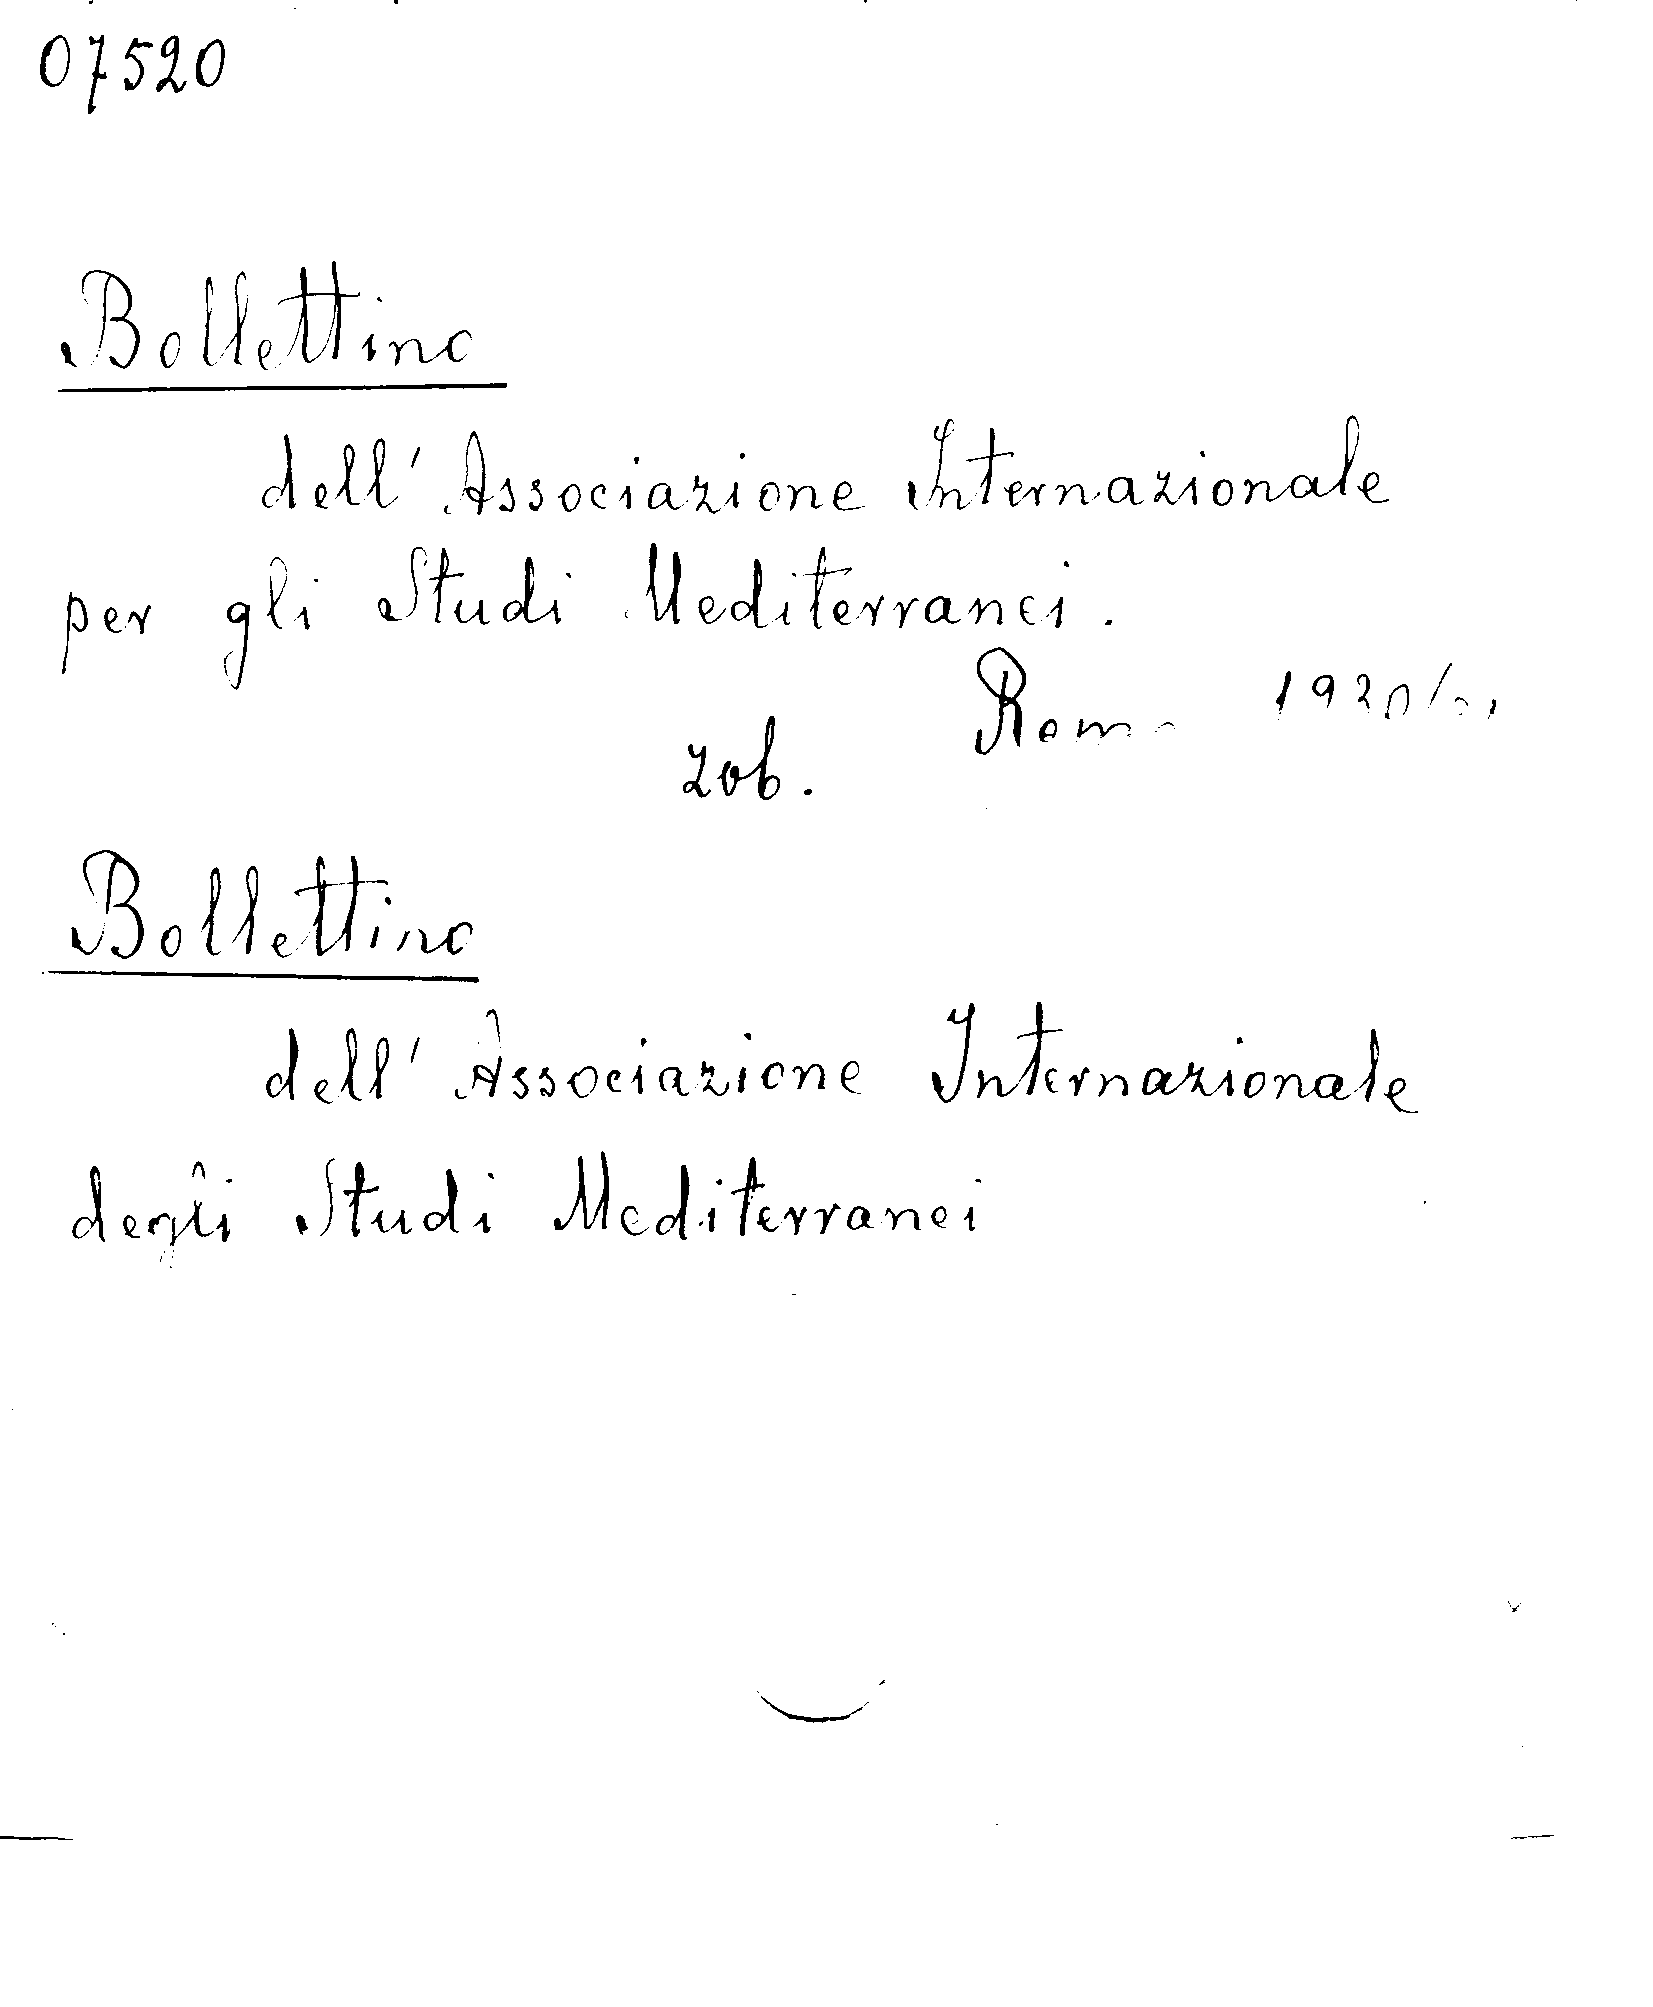 07520
Bollettino
dell' Associazione Internazionale
per gli Studi Mediterranei.
Roma
zob.
Bollettino
dell' Associazione Internazionale
degli Studi Mediterranei